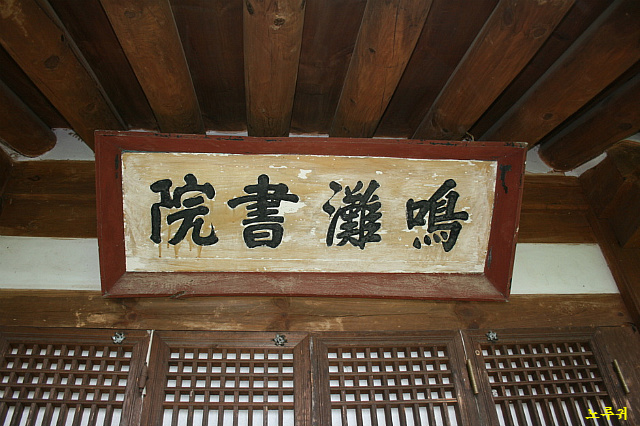 鳴灘書院
노루귀